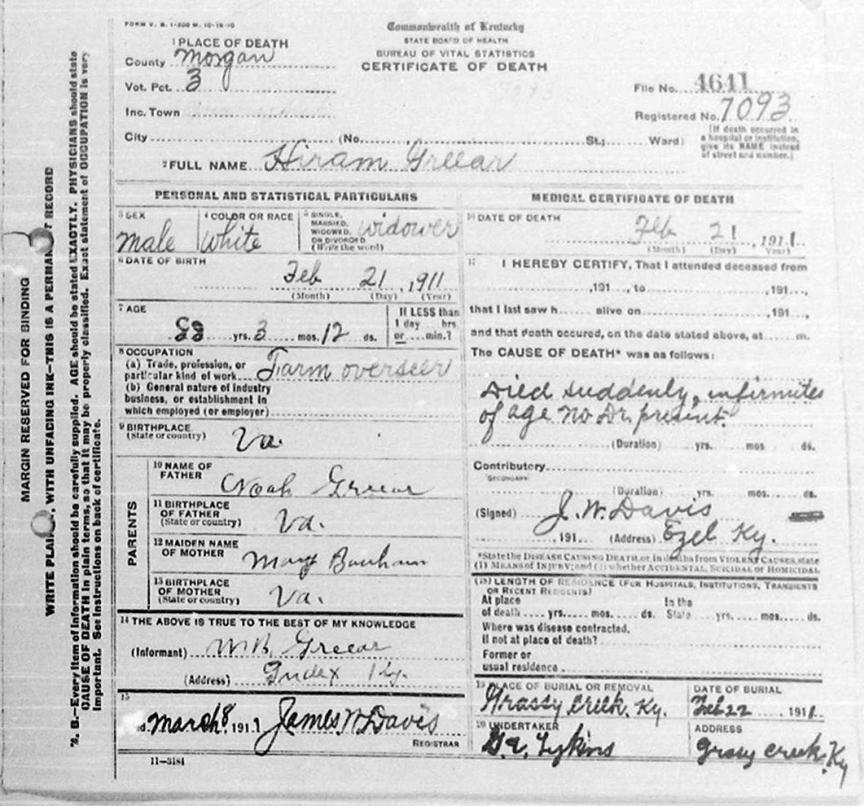 FORM V. S. 1-200 M. 10-18-10
Commonwealth of Kentucky
STATE BOARD OF HEALTH
BUREAU OF VITAL STATISTICS
CERTIFICATE OF DEATH
1 PLACE OF DEATH
County Morgan
Vot. Pct. 3
Inc. Town
City (No. St.; Ward)
File No. 4641
Registered No. 7093
(If death occurred in
a hospital or institution,
give its NAME instead
of street and number.)
2 FULL NAME Hiram Greear
PERSONAL AND STATISTICAL PARTICULARS
3 SEX
male
4 COLOR OR RACE
White
5 SINGLE,
MARRIED,
WIDOWED,
OR DIVORCED
(Write the word)
widower
6 DATE OF BIRTH
Feb 21, 1911
(Month) (Day) (Year)
7 AGE
yrs. 3 mos. 12 ds.
If LESS than
1 day hrs.
or min.?
8 OCCUPATION
(a) Trade, profession, or
particular kind of work Farm overseer
(b) General nature of industry
business, or establishment in
which employed (or employer)
9 BIRTHPLACE
(State or country) Va.
PARENTS
10 NAME OF
FATHER Noah Greear
11 BIRTHPLACE
OF FATHER
(State or country) Va.
12 MAIDEN NAME
OF MOTHER Mary
13 BIRTHPLACE
OF MOTHER
(State or country) Va.
14 THE ABOVE IS TRUE TO THE BEST OF MY KNOWLEDGE
(Informant) W.B. Greear
(Address) Index Ky.
15
March 8, 1911 James W Davis
REGISTRAR
11-3184
MEDICAL CERTIFICATE OF DEATH
16 DATE OF DEATH
Feb 21, 1911.
(Month) (Day) Year)
17 I HEREBY CERTIFY, That I attended deceased from
,191 , to ,191 ,
that I last saw h alive on ,191 ,
and that death occured, on the date stated above, at m.
The CAUSE OF DEATH* was as follows:
Died suddenly, infirmites
of age no Dr. present.
(Duration) yrs. mos ds.
Contributory
SECONDARY
(Duration) yrs. mos. ds.
(Signed) J. W. Davis
, 191 (Address) Ezel Ky.
*State the DISEASE CAUSING DEATH, or in deaths from VIOLENT CAUSES, state
(1) MEANS OF INJURY; and (2) whether ACCIDENTAL, SUICIDAL OR HOMICIDAL
(18) LENGTH OF RESIDENCE (FOR HOSPITALS, INSTITUTIONS, TRANSIENTS
OR RECENT RESIDENTS)
At place In the
of death yrs. mos. ds. State yrs. mos. ds.
Where was disease contracted.
If not at place of death?
Former or
usual residence
19 PLACE OF BURIAL OR REMOVAL
Grassy Creek, Ky.
DATE OF BURIAL
Feb 22, 1911
20 UNDERTAKER
Lykins
ADDRESS
Grassy Creek, Ky
MARGIN RESERVED FOR BINDING
WRITE PLAIN , WITH UNFADING INK—THIS IS A PERMAN T RECORD
N. B.—Every item of information should be carefully supplied. AGE should be stated EXACTLY. PHYSICIANS should state
CAUSE OF DEATH in plain terms, so that it may be properly classified. Exact statement of OCCUPATION is very
important. See instructions on back of certificate.